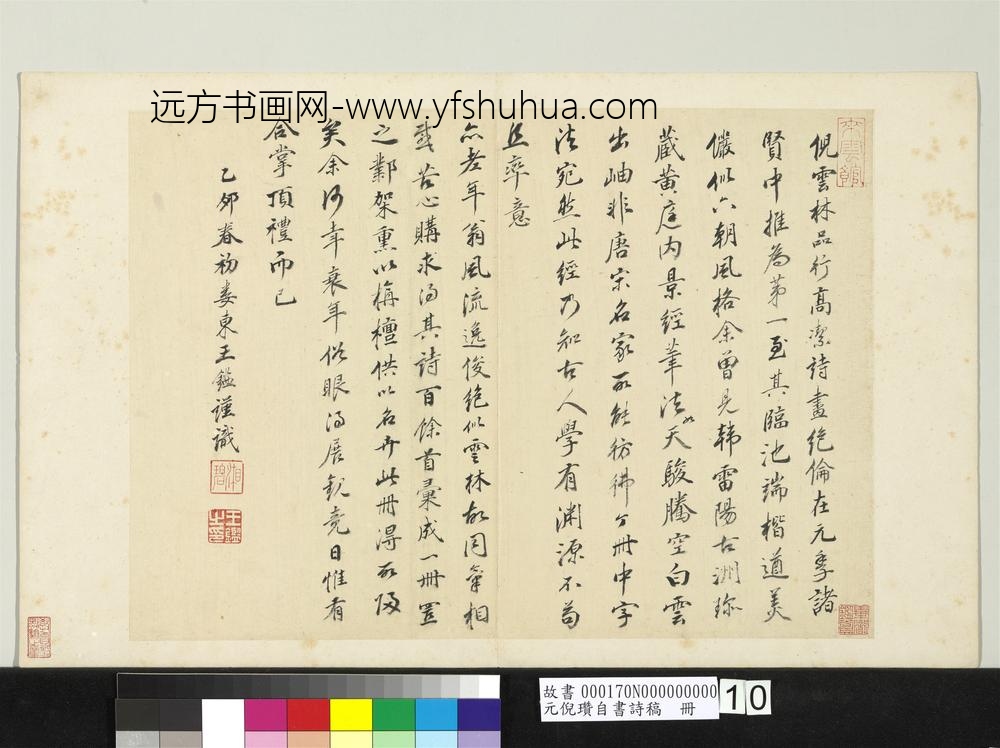 远方书画网-www.yfshuhua.com
倪雲林品行高潔詩畫絶倫在元季諸
賢中推為第一至其臨池端楷遒美
儼似六朝風格余曾見韓雷陽古洲珎
藏黄庭内景經筆法如天駿騰空白雲
出岫非唐宋名家所能彷彿今冊中字
法宛然此經乃知古人學有渊源不苟
且率意
年翁風流逸俊絶似雲林故同氣相
苦心購求得其詩百餘首彙成一冊置
之鄴架熏以栴檀供以名卉此冊得所歸
矣余何幸衰年俗眼得展玩竟日惟有
合掌頂禮而已
乙卯春初婁東王鑑謹識
湘碧
王鑑之印
來雲館
故書 000170N000000000
元倪瓚自書詩稿 冊
10